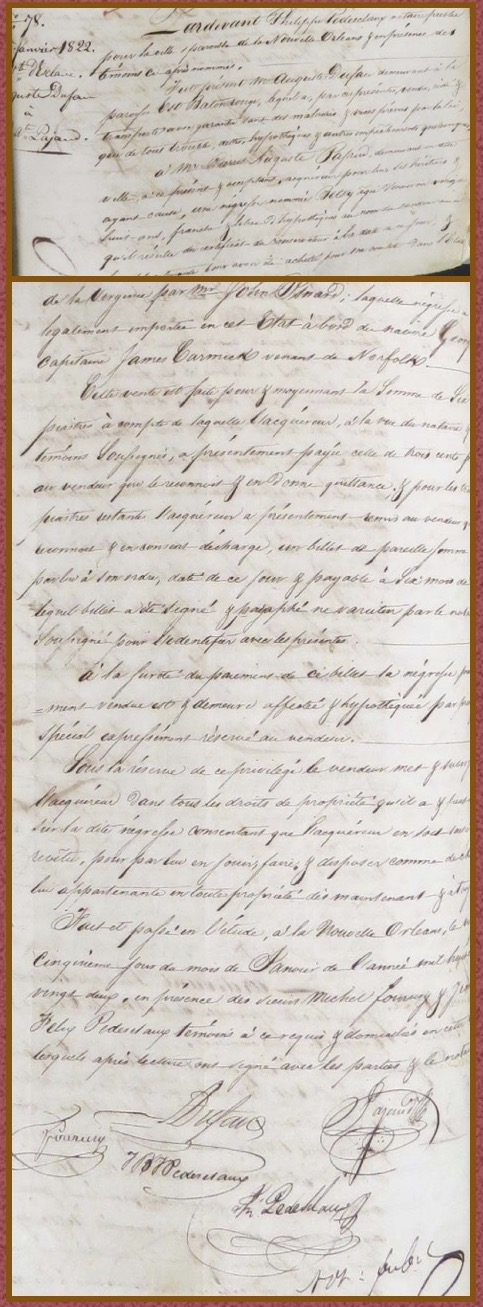 N° 78.
Janvier 1822.
Vt. d'Esclave.
guste Dufau
à
Pajaud.
Pardevant Philippe Pedesclaux notaire public
pour la ville & paroisse de la Nouvelle Orléans & en présence des
témoins ci après nommés.
Fut présent Mr. Auguste Dufau demeurant à la
paroisse Est Baton rouge, lequel a, par ces présentes, vendu, cédé &
transporté avec garantie tant des maladies & vices prévus par la loi,
que de tous troubles, dettes, hypothèques & autres empêchements quelconques,
à Mr. Pierre Auguste Pajaud, demeurant en cette
ville, à ce présent & acceptant, acquéreur pour lui ses héritiers &
ayant cause, une négresse nommée Betsy, agée d'environ
huit ans, franche & libre d'hypothèques au nom du vendeur
qu'il résulte du certificat du conservateur à la date
pour avoir été achetée
de la Virginie par Mr. John ; laquelle négresse a
légalement importée en cet Etat à bord du navire Geor
capitaine James Carmick venant de Norfolk.
Cette vente est faite pour & moyennant la Somme de Six
piastres à compte de laquelle l'acquéreur, à la vue du notaire &
témoins Soussignés, a présentement payée celle de trois cents p
au vendeur qui le reconnait & en donne quittance; & pour les
piastres restantes l'acquéreur a présentement remis au vendeur q
reconnait & en consent décharge, un billet de pareille somme
par lui à son ordre, daté de ce jour & payable à Six mois de
lequel billet a été signé & paraphé ne varietur par le not
Soussigné pour l'identifier avec les présentes.
à la sureté du paiement de ce billet la négresse p
=ment vendue est & demeure affectée & hypothéquée par
Spécial expressément réservé au vendeur.
Sous la réserve de ce privilége le vendeur met & subro
l'acquéreur dans tous les droits de propriété qu'il a &
sur la dite négresse consentant que l'acquéreur en soit
revêtu, pour par lui en jouir, faire & disposer comme de ch
lui appartenante en toute propriété dès maintenant & à t
Fait et passé en l'étude, à la Nouvelle Orléans, le
cinquième jour du mois de Janvier de l'année mil huit
vingt deux, en présence des sieurs Michel Fourcisy & J
Felix Pedesclaux témoins à ce requis & domiciliés en cette
lesquels après lecture ont signé avec les parties & le not
ADufau
Pajaud
Fourcisy
J B F Pedesclaux
Ph. Pedesclaux
Not: pub: